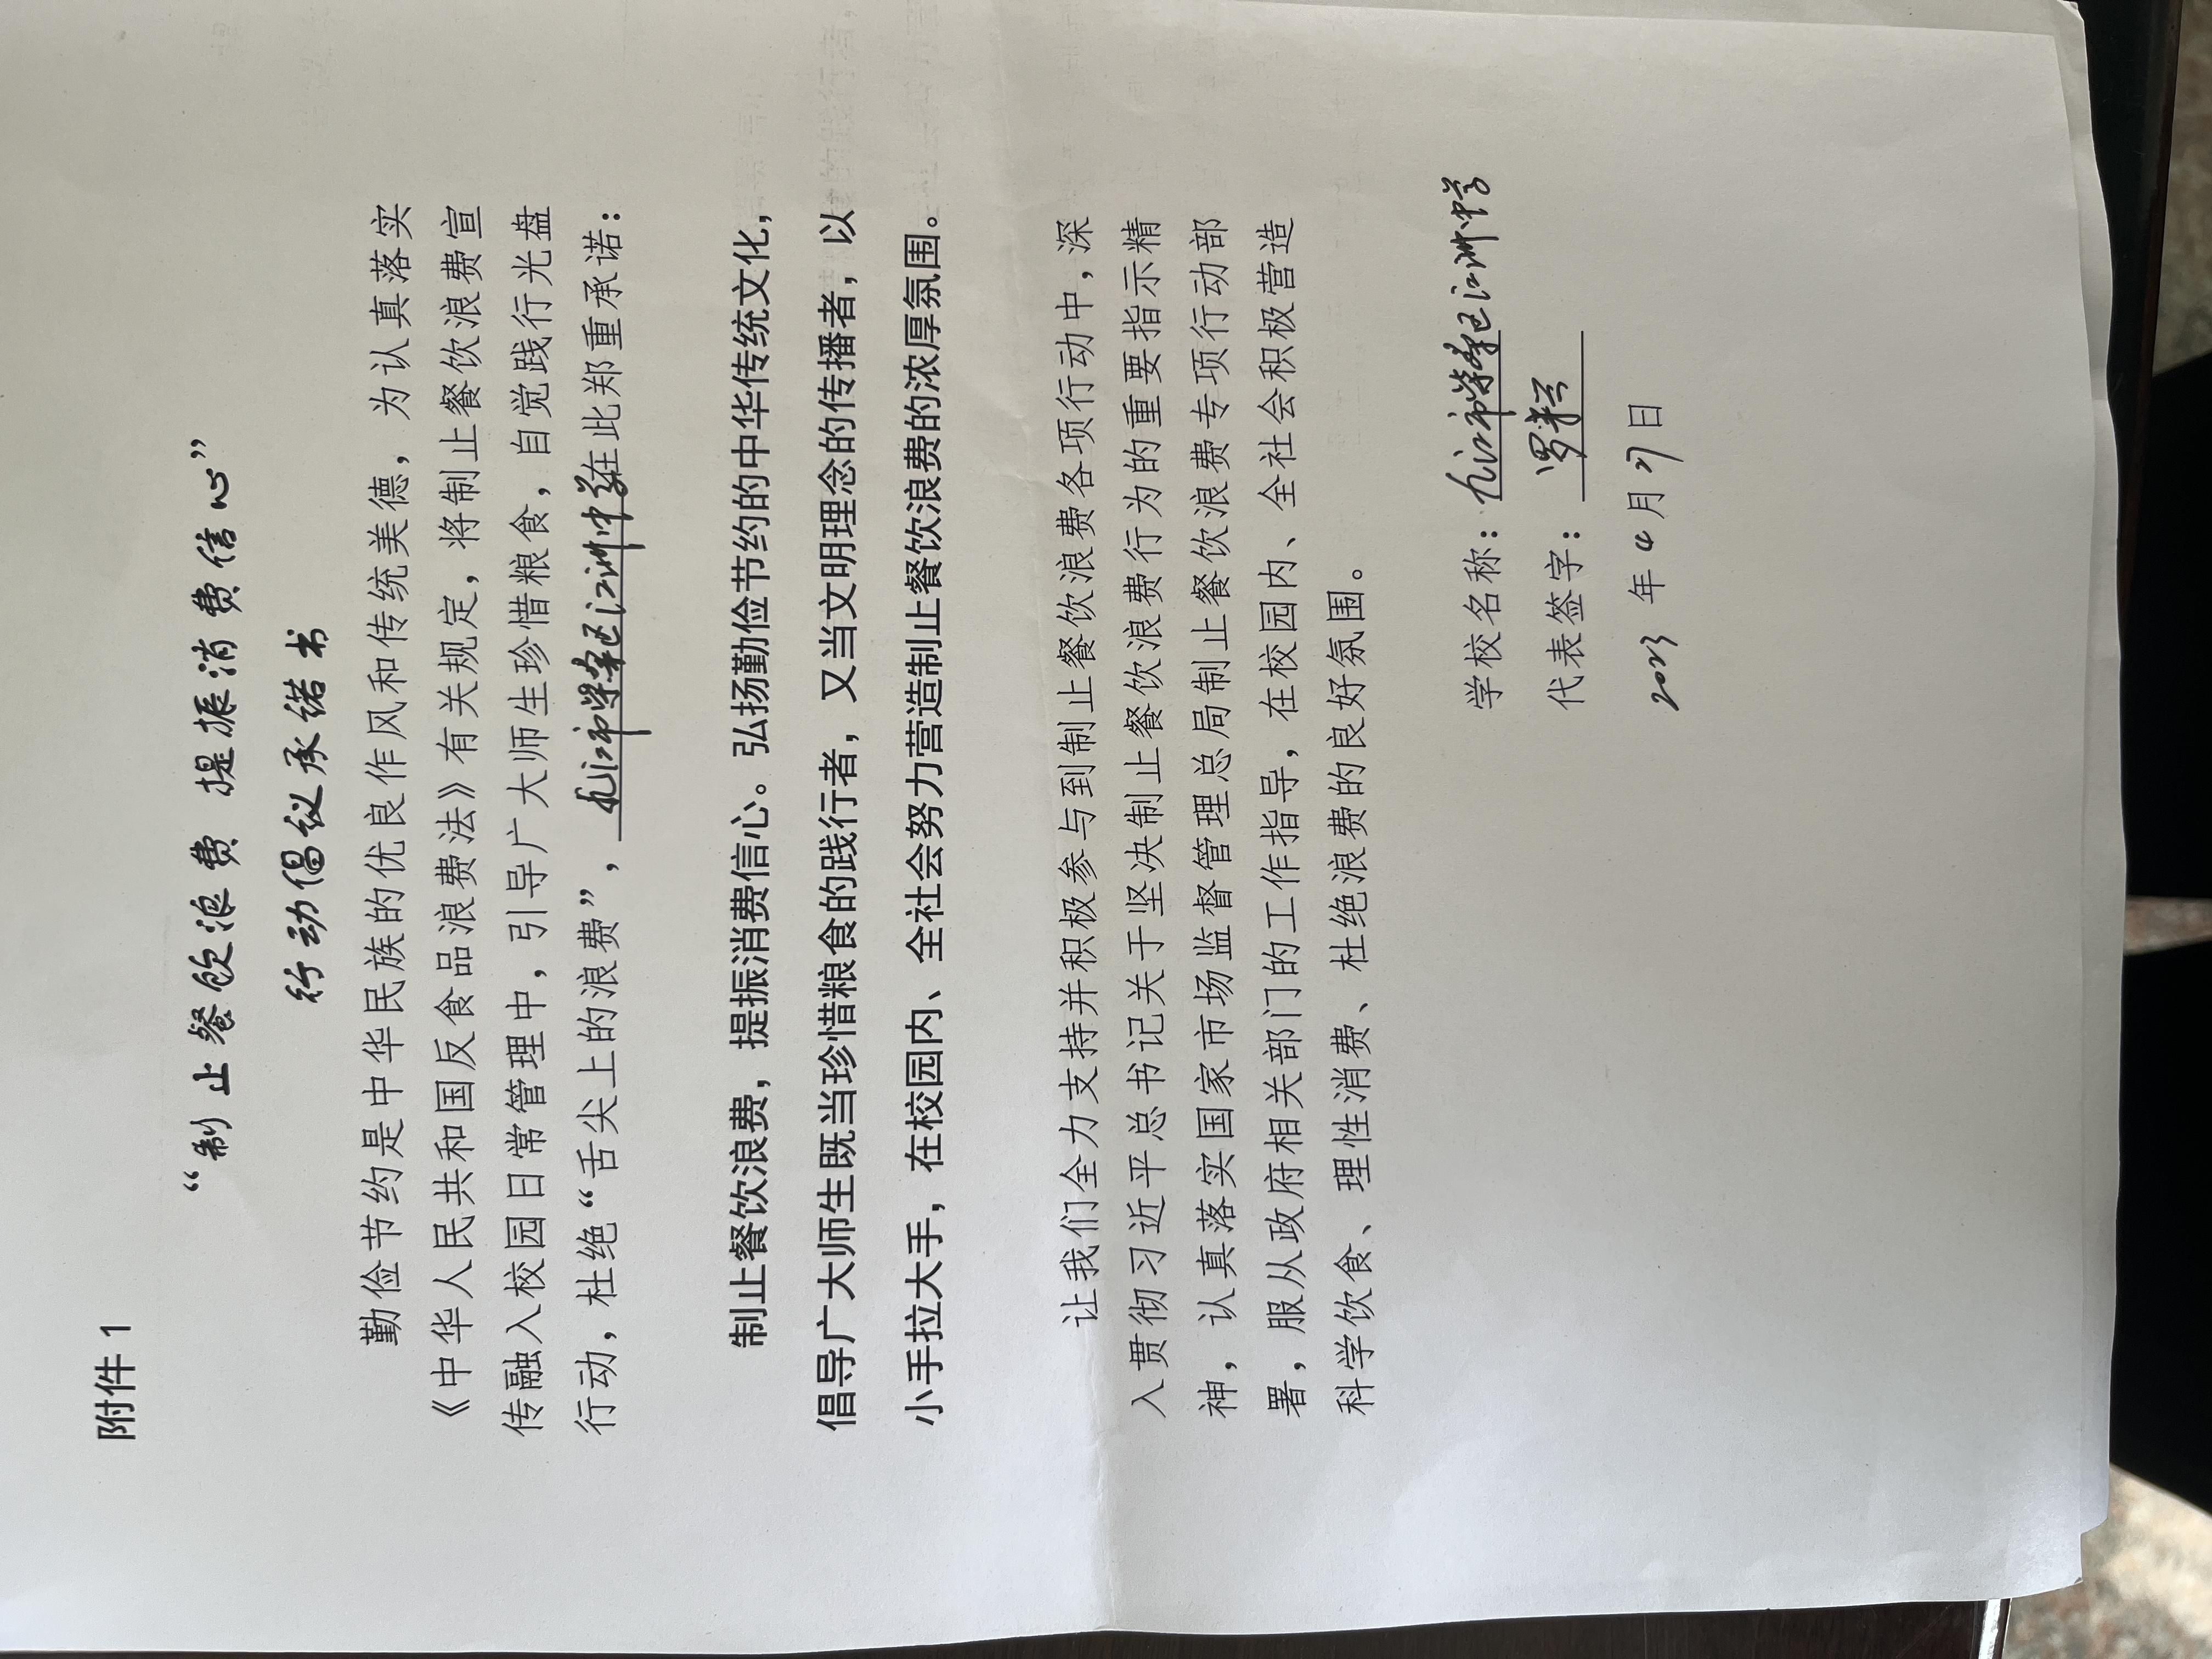 附件 1
“制止餐饮浪费 提振消费信心”
行动倡议承诺书
勤俭节约是中华民族的优良作风和传统美德，为认真落实
《中华人民共和国反食品浪费法》有关规定，将制止餐饮浪费宣
传融入校园日常管理中，引导广大师生珍惜粮食，自觉践行光盘
行动，杜绝“舌尖上的浪费”，九江市柴桑区江洲中学在此郑重承诺：
制止餐饮浪费，提振消费信心。弘扬勤俭节约的中华传统文化，
倡导广大师生既当珍惜粮食的践行者，又当文明理念的传播者，以
小手拉大手，在校园内、全社会努力营造制止餐饮浪费的浓厚氛围。
让我们全力支持并积极参与到制止餐饮浪费各项行动中，深
入贯彻习近平总书记关于坚决制止餐饮浪费行为的重要指示精
神，认真落实国家市场监督管理总局制止餐饮浪费专项行动部
署，服从政府相关部门的工作指导，在校园内、全社会积极营造
科学饮食、理性消费、杜绝浪费的良好氛围。
学校名称：九江市柴桑区江洲中学
代表签字：罗
2023 年 4 月 27 日